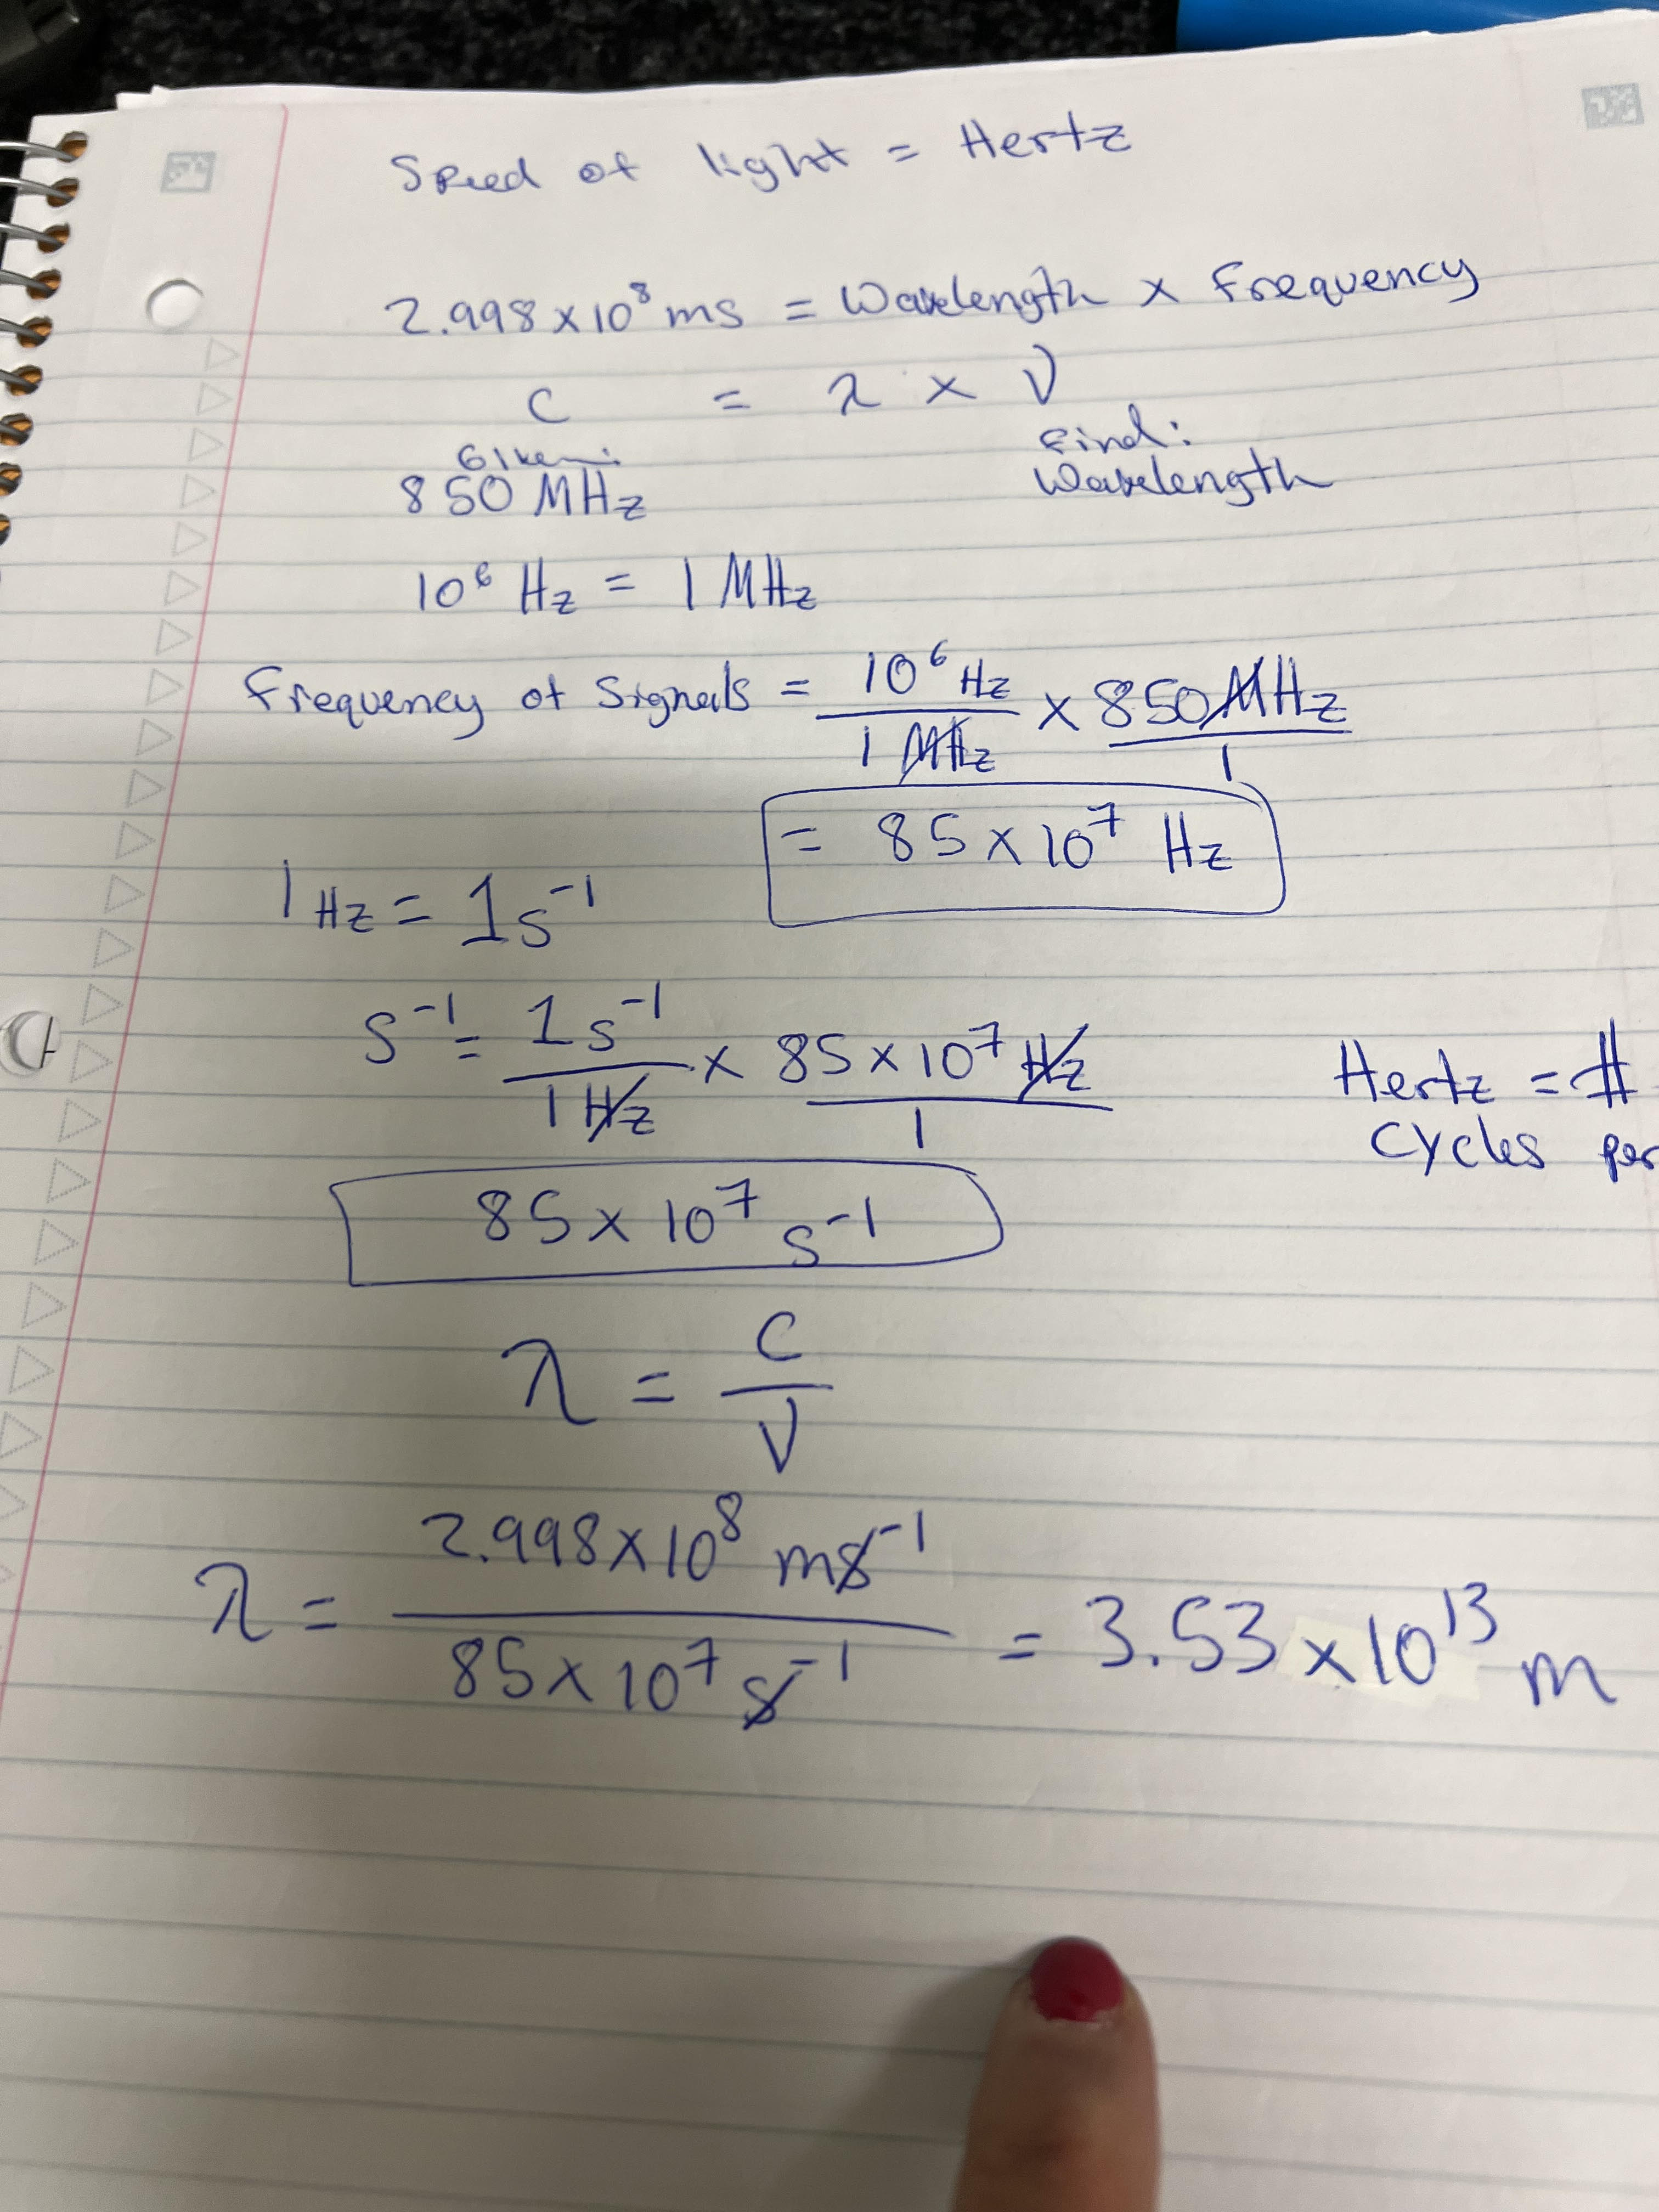 Speed of light = Hertz
2.998 x 10⁸ ms = Wavelength x Frequency
C = λ x ν
Given: Find:
850 MHz Wavelength
10⁶ Hz = 1 MHz
Frequency of Signals = 10⁶ Hz / 1 MHz x 850 MHz / 1
= 85 x 10⁷ Hz
1 Hz = 1 s⁻¹
s⁻¹ = 1 s⁻¹ / 1 Hz x 85 x 10⁷ Hz / 1
Hertz = #
Cycles per
85 x 10⁷ s⁻¹
λ = C / ν
λ = 2.998 x 10⁸ ms⁻¹ / 85 x 10⁷ s⁻¹ = 3.53 x 10¹³ m